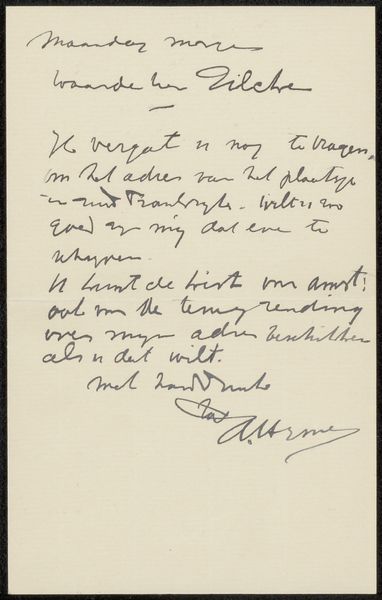 Maandag morgen
Waarde heer Zilcken
Ik vergat u nog te vragen
om het adres van het plaatsje
in Frankryk. Wilt u zoo
goed zyn my dat even te
schryven
U kunt de kist v. Amst:
ook v. de terugzending
over myn adres beschikken
als u dat wilt.
met handdruk